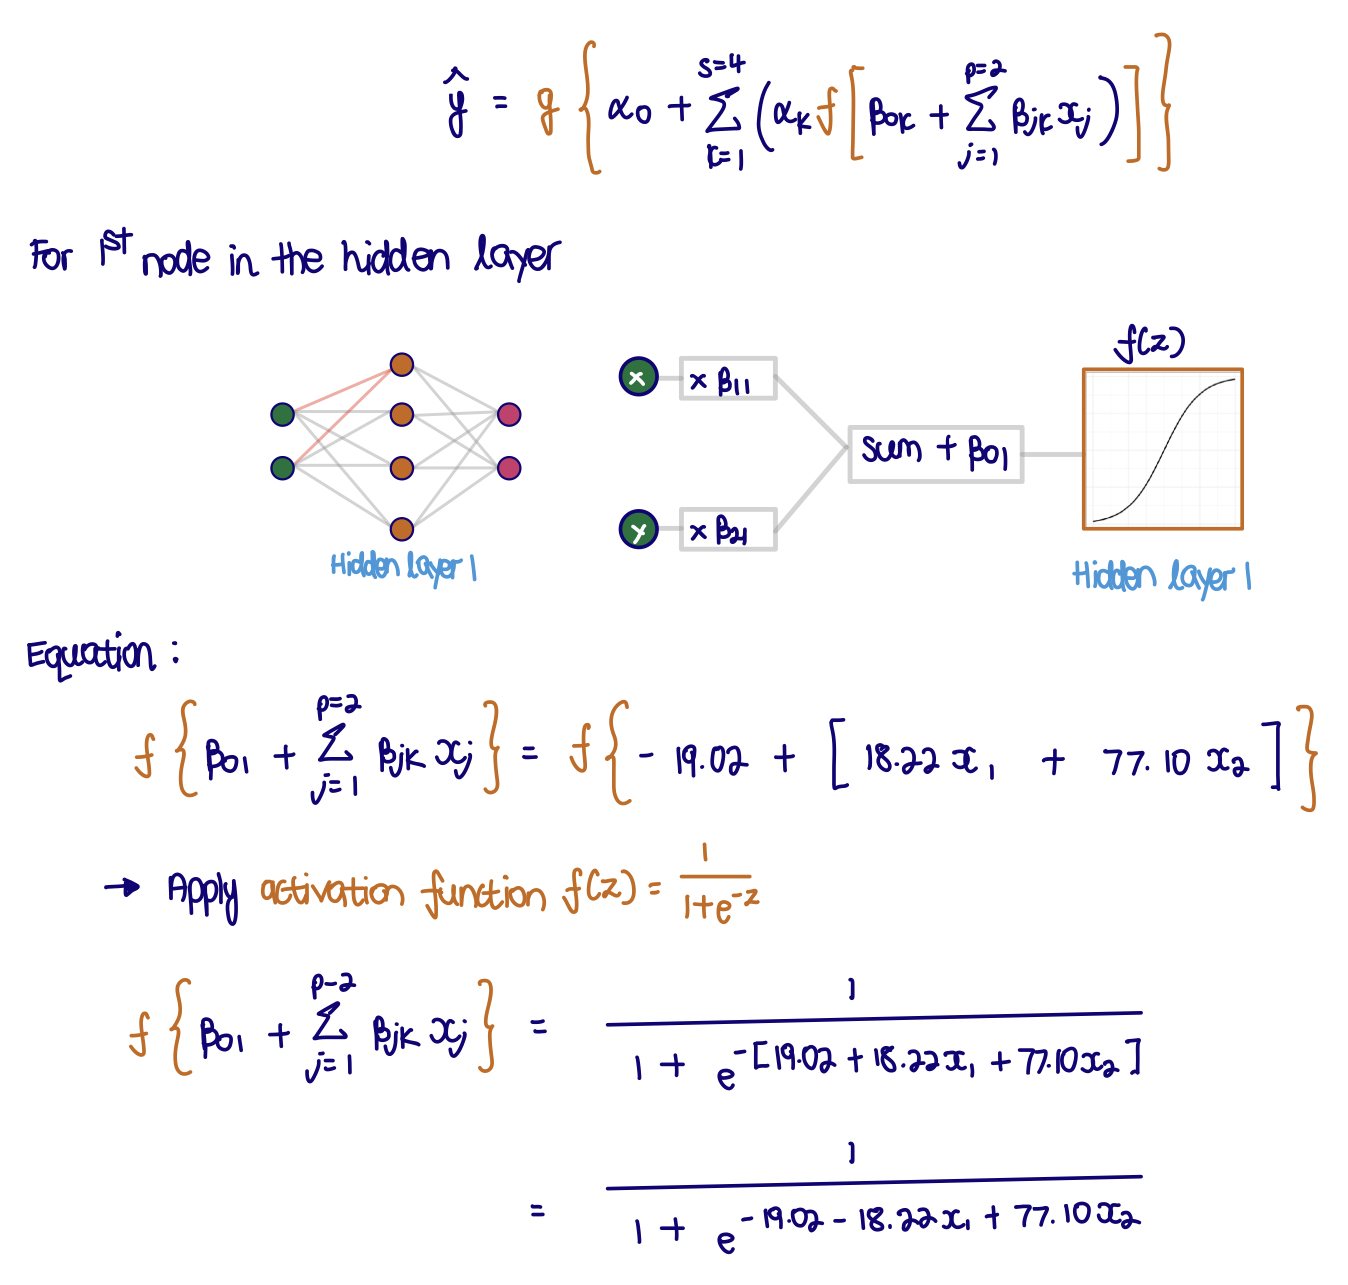 ŷ = g { α0 + Σ s=4 k=1 ( αk f [ β0k + Σ p=2 j=1 βjk xj ) ] }
For 1st node in the hidden layer
f(z)
x × β11
sum + β01
y × β21
Hidden layer 1
Hidden layer 1
Equation :
f { β01 + Σ p=2 j=1 βjk xj } = f { - 19.02 + [ 18.22 x1 + 77.10 x2 ] }
→ Apply activation function f(z) = 1 / 1+e^-z
f { β01 + Σ p-2 j=1 βjk xj } = 1 / 1 + e^-[19.02 + 18.22x1 + 77.10x2]
= 1 / 1 + e^-19.02 - 18.22x1 + 77.10x2